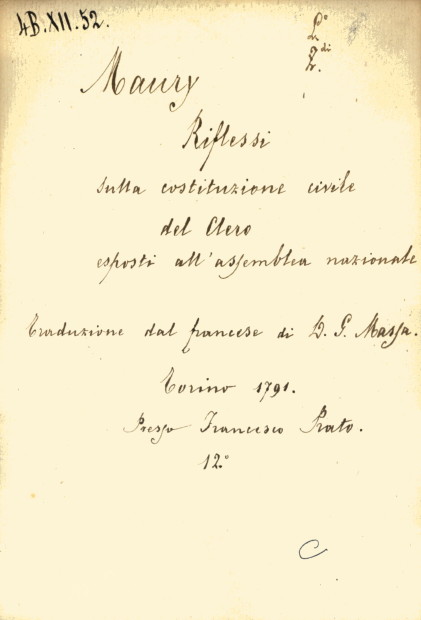 4B.XII.52.
L.°
2 di
Maury
Riflessi
sulla costituzione civile
del Clero
esposti all'assemblea nazionale
Traduzione dal francese di D. G. Massa.
Torino 1791.
Presso Francesco Prato.
12.°
C